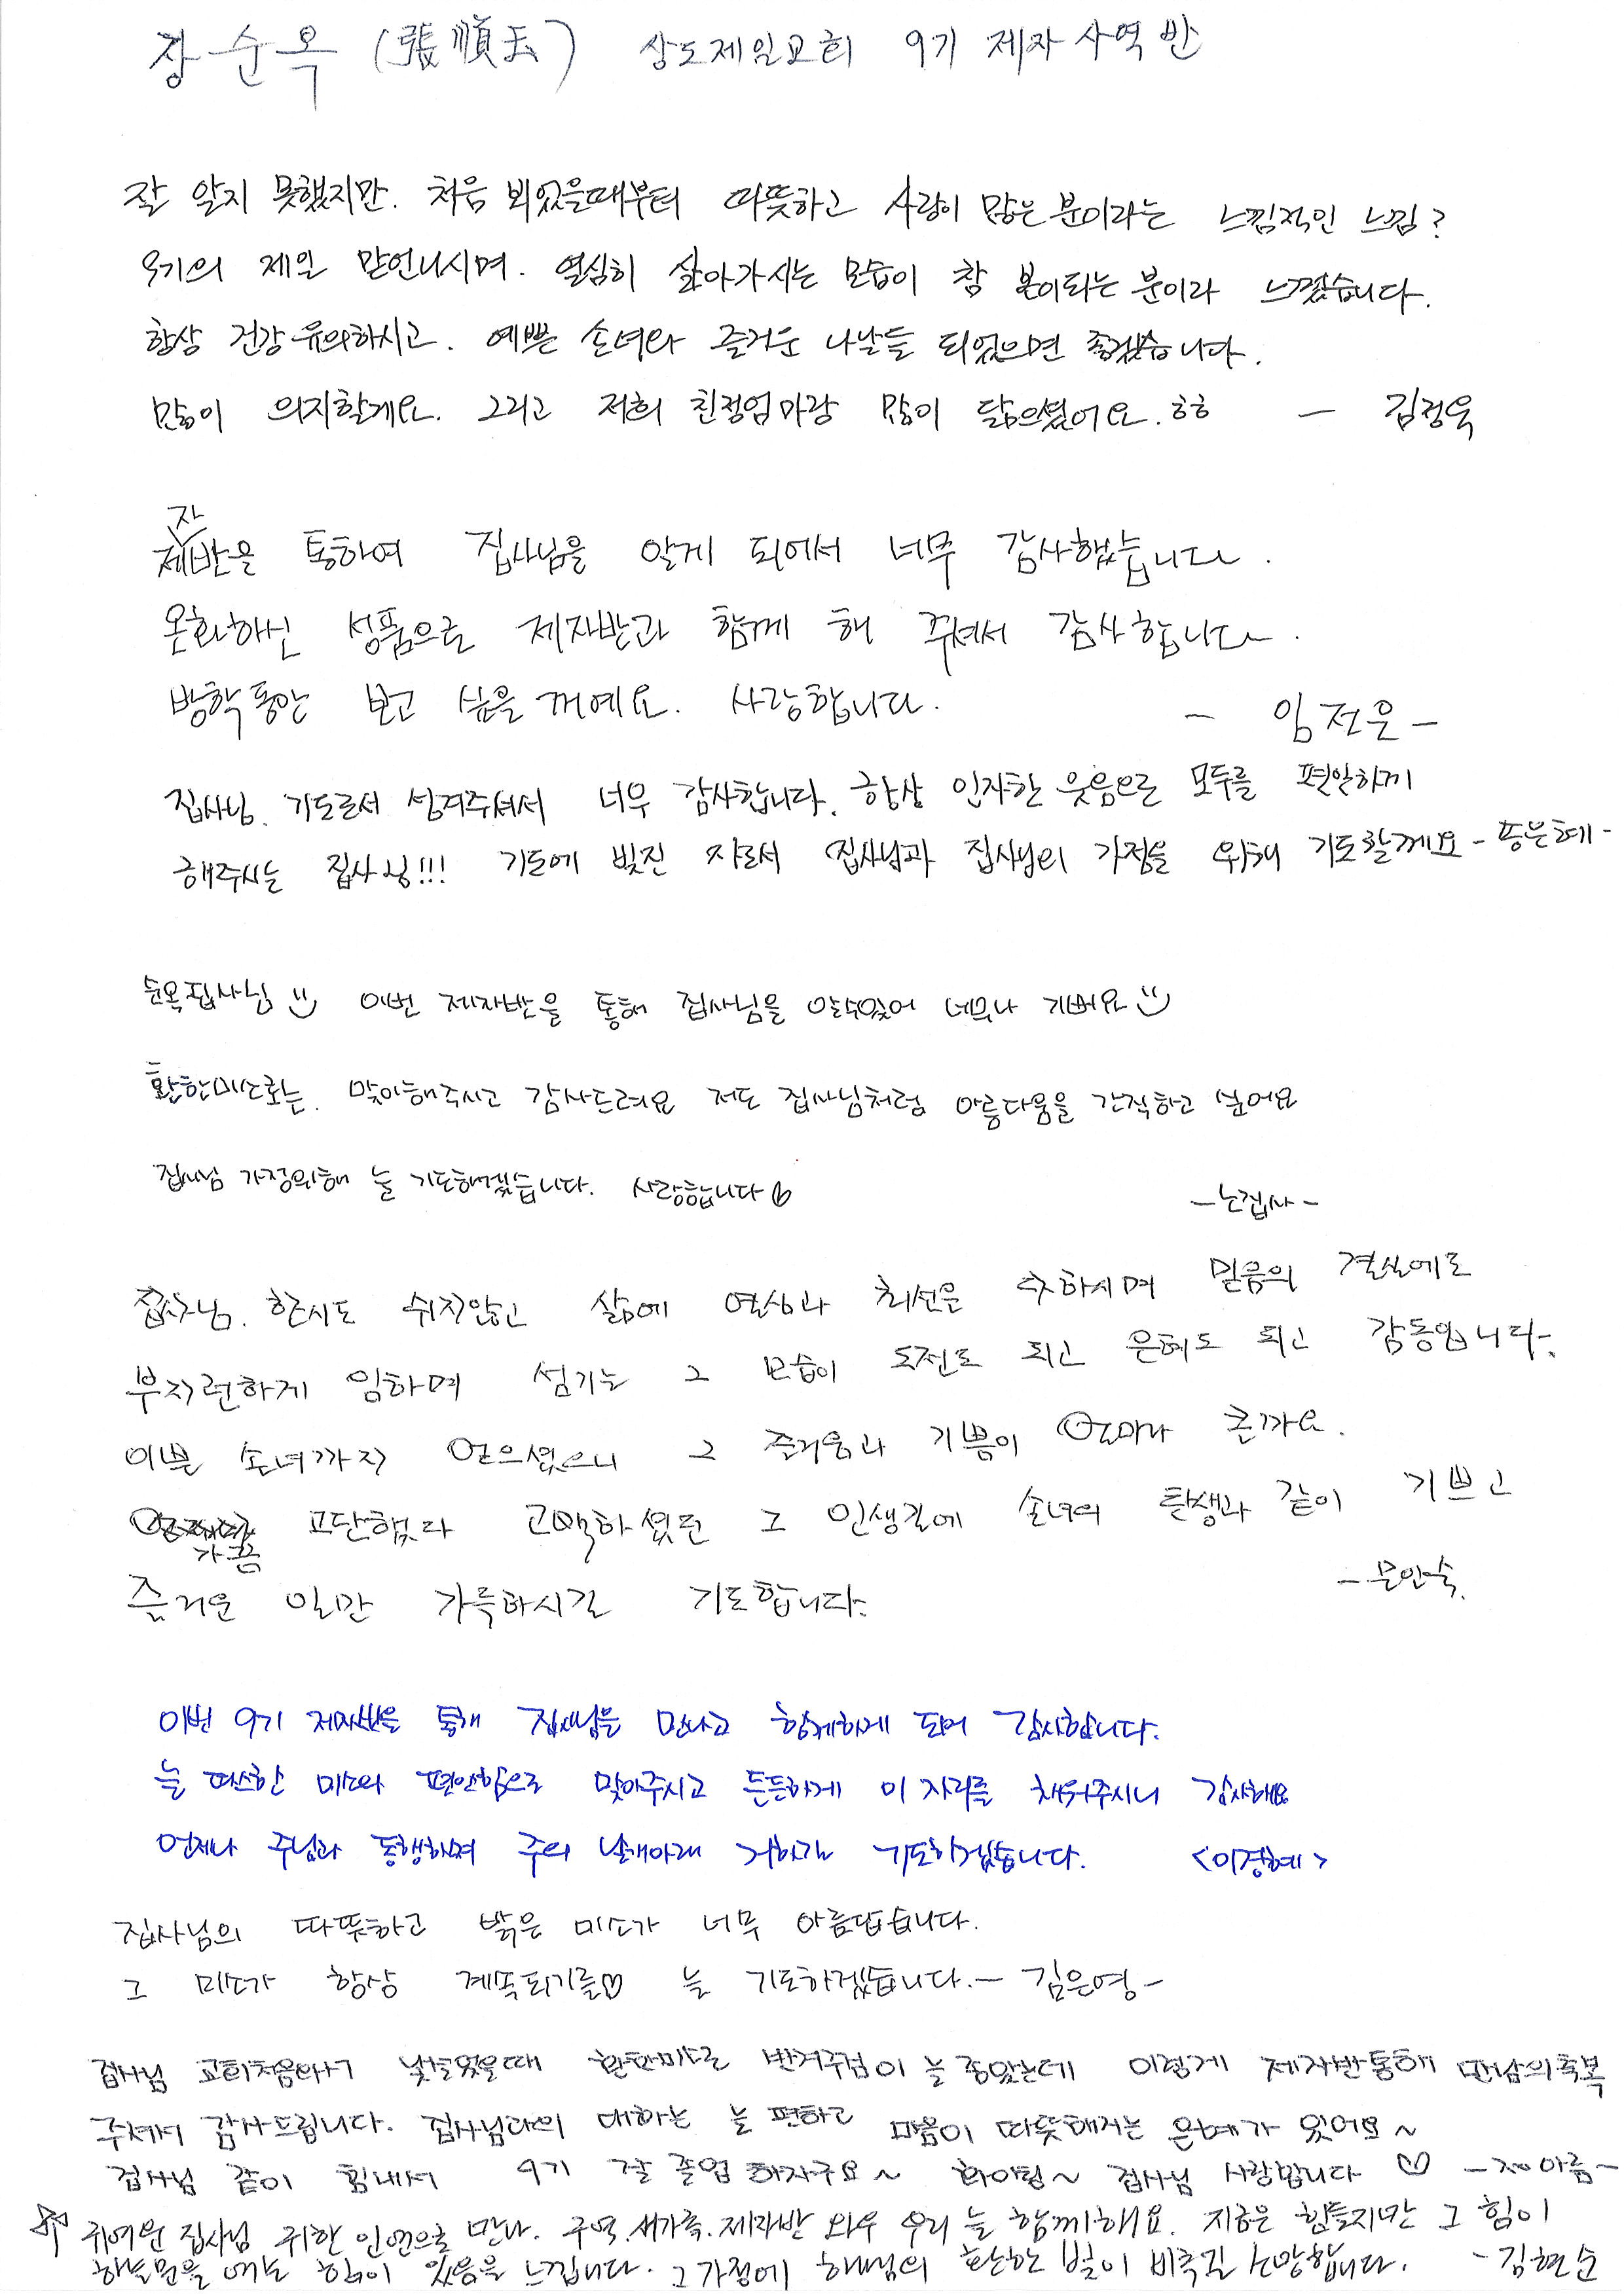 장순옥 (張順玉) 상도제일교회 9기 제자사역반
잘 알지 못했지만. 처음 뵈었을때부터 따뜻하고 사랑이 많은 분이라는 느낌적인 느낌?
9기의 제일 맏언니시며. 열심히 살아가시는 모습이 참 본이되는 분이라 느꼈습니다.
항상 건강 유의하시고. 예쁜 손녀와 즐거운 나날들 되었으면 좋겠습니다.
많이 의지할게요. 그리고 저희 친정엄마랑 많이 닮으셨어요. ㅎㅎ — 김정욱
자
제반을 통하여 집사님을 알게 되어서 너무 감사했습니다.
온화하신 성품으로 제자반과 함께 해 주셔서 감사합니다.
방학동안 보고 싶을꺼예요. 사랑합니다. - 임전은 -
집사님. 기도로서 섬겨주셔서 너무 감사합니다. 항상 인자한 웃음으로 모두를 편안하게
해주시는 집사님!!! 기도에 빚진 자로서 집사님과 집사님의 가정을 위해 기도할께요 - 은혜 -
순옥집사님 이번 제자반을 통해 집사님을 알수있어 너무나 기뻐요
환한미소로는. 맞이해주시고 감사드려요 저도 집사님처럼 아름다움을 간직하고 싶어요
집사님 가정위해 늘 기도해겠습니다. 사랑합니다♡ - 노집사 -
집사님. 한시도 쉬지않고 삶에 열심과 최선을 추하시며 믿음의 결실에도
부지런하게 임하며 섬기는 그 모습이 도전도 되고 은혜도 되고 감동입니다.
이쁜 손녀까지 얻으셨으니 그 즐거움과 기쁨이 얼마나 큰가요.
가끔 고단했다 고백하셨던 그 인생길에 손녀의 탄생과 같이 기쁘고
즐거운 일만 가득하시길 기도합니다. - 문안숙.
이번 9기 제자반을 통해 집사님을 만나고 함께하게 되어 감사합니다.
늘 따스한 미소와 편안함으로 맞아주시고 든든하게 이 자리를 채워주시니 감사해요
언제나 주님과 동행하며 주의 날개아래 거하길 기도하겠습니다. <이경혜>
집사님의 따뜻하고 밝은 미소가 너무 아름답습니다.
그 미소가 항상 계속되기를♡ 늘 기도하겠습니다. - 김은영 -
집사님 교회처음와서 낯설었을때 환한미소로 반겨주심이 늘 좋았는데 이렇게 제자반통해 만남의축복
주셔서 감사드립니다. 집사님과의 대화는 늘 편하고 마음이 따뜻해지는 은혜가 있어요~
집사님 같이 힘내서 9기 잘 졸업하자구요~ 화이팅~ 집사님 사랑합니다 ♡ - 아름 -
귀여운 집사님 귀한 인연으로 만나. 구역. 새가족. 제자반 와우 우리 늘 함께해요. 지금은 힘들지만 그 힘이
하늘문을 여는 힘이 있음을 느낍니다. 그가정에 해님의 환한 빛이 비추길 소망합니다. - 김현순